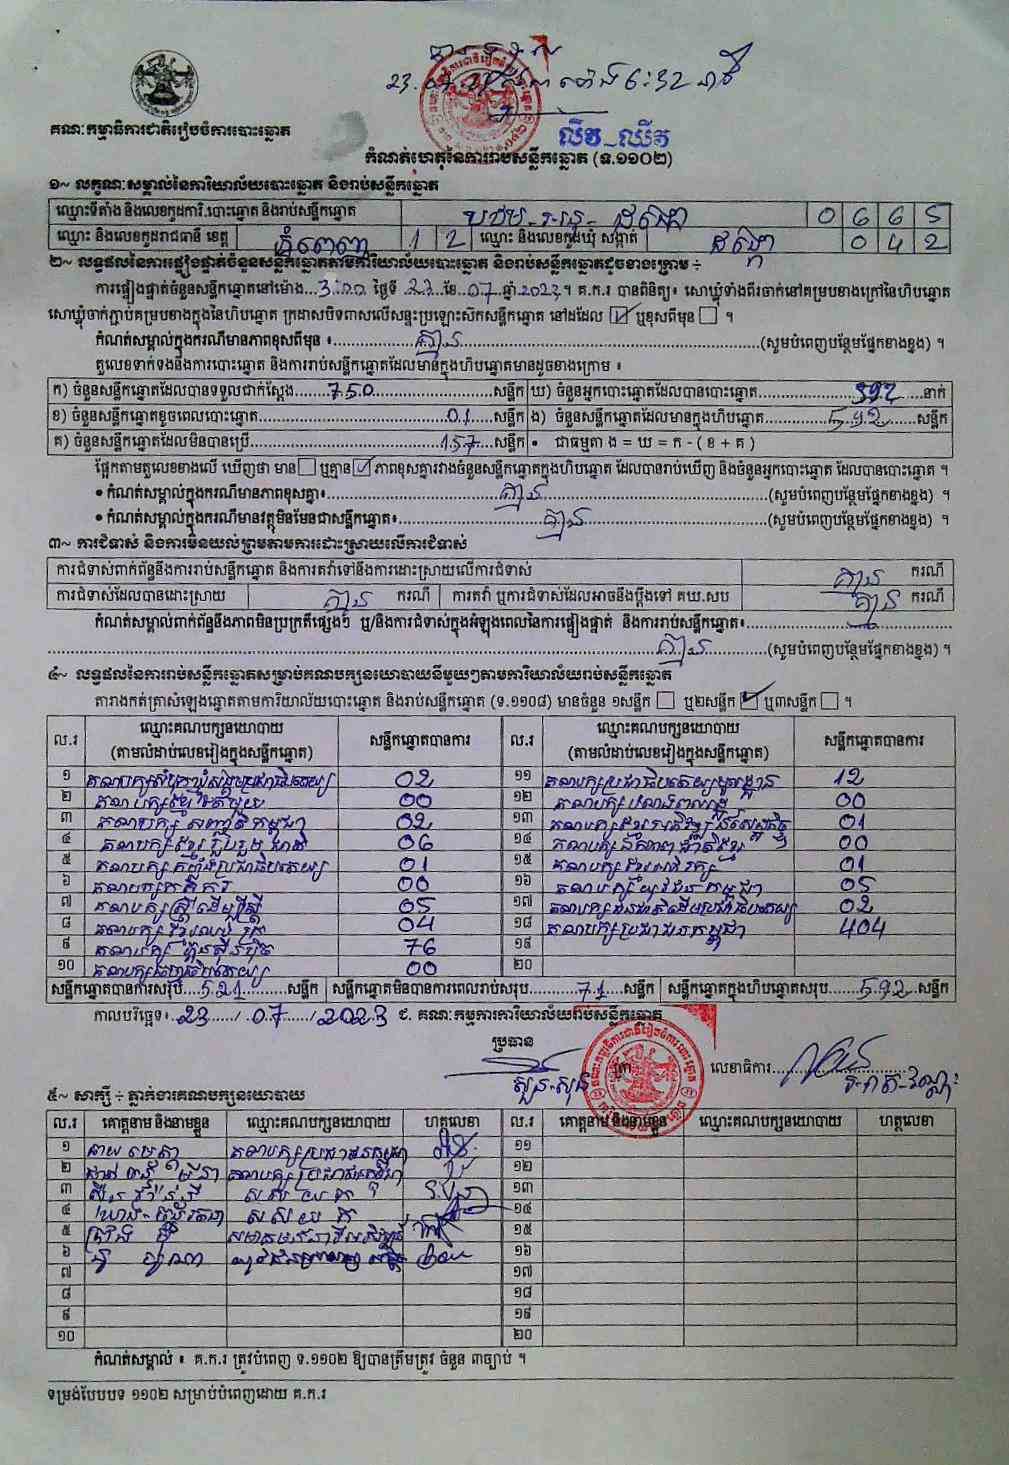 23.07.2023 ម៉ោង 6:32 នាទី
លិវ ឈីវ
គណៈកម្មាធិការជាតិរៀបចំការបោះឆ្នោត
កំណត់ហេតុនៃការរាប់សន្លឹកឆ្នោត (ទ.១១០២)
១~ លក្ខណៈសម្គាល់នៃការិយាល័យបោះឆ្នោត និងរាប់សន្លឹកឆ្នោត
ឈ្មោះទីតាំង និងលេខកូដការិ.បោះឆ្នោត និងរាប់សន្លឹកឆ្នោត 0 6 6 5
ឈ្មោះ និងលេខកូដរាជធានី ខេត្ត ភ្នំពេញ 1 2 ឈ្មោះ និងលេខកូដឃុំ សង្កាត់ ដង្កោ 0 4 2
២~ លទ្ធផលនៃការផ្ទៀងផ្ទាត់ចំនួនសន្លឹកឆ្នោតតាមការិយាល័យបោះឆ្នោត និងរាប់សន្លឹកឆ្នោតដូចខាងក្រោម ÷
ការផ្ទៀងផ្ទាត់ចំនួនសន្លឹកឆ្នោតនៅម៉ោង...3:00 ថ្ងៃទី 23 ខែ..07 ឆ្នាំ 2023។ គ.ក.រ បានពិនិត្យ៖ សោឃ្លុំទាំងពីរចាក់នៅគម្របខាងក្រៅនៃហិបឆ្នោត
សោឃ្លុំចាក់ភ្ជាប់គម្របខាងក្នុងនៃហិបឆ្នោត ក្រដាសបិទពាសលើសន្ទះប្រឡោះសិកសន្លឹកឆ្នោត នៅដដែល ☑ ឬខុសពីមុន ☐ ។
កំណត់សម្គាល់ក្នុងករណីមានភាពខុសពីមុន ៖ គ្មាន (សូមបំពេញបន្ថែមផ្នែកខាងខ្នង) ។
តួលេខទាក់ទងនឹងការបោះឆ្នោត និងការរាប់សន្លឹកឆ្នោតដែលមានក្នុងហិបឆ្នោតមានដូចខាងក្រោម ៖
ក) ចំនួនសន្លឹកឆ្នោតដែលបានទទួលជាក់ស្តែង 750 សន្លឹក ឃ) ចំនួនអ្នកបោះឆ្នោតដែលបានបោះឆ្នោត 592 នាក់
ខ) ចំនួនសន្លឹកឆ្នោតខូចពេលបោះឆ្នោត 01 សន្លឹក ង) ចំនួនសន្លឹកឆ្នោតដែលមានក្នុងហិបឆ្នោត 592 សន្លឹក
គ) ចំនួនសន្លឹកឆ្នោតដែលមិនបានប្រើ 157 សន្លឹក • ជាធម្មតា ង = ឃ = ក - ( ខ + គ )
ផ្អែកតាមតួលេខខាងលើ ឃើញថា មាន ☐ ឬគ្មាន ☑ ភាពខុសគ្នារវាងចំនួនសន្លឹកឆ្នោតក្នុងហិបឆ្នោត ដែលបានរាប់ឃើញ និងចំនួនអ្នកបោះឆ្នោត ដែលបានបោះឆ្នោត ។
• កំណត់សម្គាល់ក្នុងករណីមានភាពខុសគ្នា៖ គ្មាន (សូមបំពេញបន្ថែមផ្នែកខាងខ្នង) ។
• កំណត់សម្គាល់ក្នុងករណីមានវត្ថុមិនមែនជាសន្លឹកឆ្នោត៖ គ្មាន (សូមបំពេញបន្ថែមផ្នែកខាងខ្នង) ។
៣~ ការជំទាស់ និងការមិនយល់ព្រមតាមការដោះស្រាយលើការជំទាស់
ការជំទាស់ពាក់ព័ន្ធនឹងការរាប់សន្លឹកឆ្នោត និងការតវ៉ាទៅនឹងការដោះស្រាយលើការជំទាស់ គ្មាន ករណី
ការជំទាស់ដែលបានដោះស្រាយ គ្មាន ករណី ការតវ៉ា ឬការជំទាស់ដែលអាចនឹងប្តឹងទៅ គឃ.សប គ្មាន ករណី
កំណត់សម្គាល់ពាក់ព័ន្ធនឹងភាពមិនប្រក្រតីផ្សេងៗ ឬ/និងការជំទាស់ក្នុងអំឡុងពេលនៃការផ្ទៀងផ្ទាត់ និងការរាប់សន្លឹកឆ្នោត៖
គ្មាន (សូមបំពេញបន្ថែមផ្នែកខាងខ្នង) ។
៤~ លទ្ធផលនៃការរាប់សន្លឹកឆ្នោតសម្រាប់គណបក្សនយោបាយនីមួយៗតាមការិយាល័យរាប់សន្លឹកឆ្នោត
តារាងកត់ត្រាសំឡេងឆ្នោតតាមការិយាល័យបោះឆ្នោត និងរាប់សន្លឹកឆ្នោត (ទ.១១០៨) មានចំនួន ១សន្លឹក ☐ ឬ២សន្លឹក ☑ ឬ៣សន្លឹក ☐ ។
ល.រ ឈ្មោះគណបក្សនយោបាយ (តាមលំដាប់លេខរៀងក្នុងសន្លឹកឆ្នោត) សន្លឹកឆ្នោតបានការ ល.រ ឈ្មោះគណបក្សនយោបាយ (តាមលំដាប់លេខរៀងក្នុងសន្លឹកឆ្នោត) សន្លឹកឆ្នោតបានការ
១ គណបក្សសំបុកឃ្មុំសង្គមប្រជាធិបតេយ្យ 02 ១១ 12
២ គណបក្សខ្មែរតែមួយ 00 ១២ 00
៣ គណបក្សសញ្ជាតិកម្ពុជា 02 ១៣ 01
៤ គណបក្សខ្មែររួបរួមជាតិ 06 ១៤ 00
៥ គណបក្សកម្លាំងប្រជាធិបតេយ្យ 01 ១៥ 01
៦ គណបក្សកសិករ 00 ១៦ គណបក្សយុវជនកម្ពុជា 05
៧ គណបក្សស្ត្រីដើម្បីស្ត្រី 05 ១៧ 02
៨ 04 ១៨ គណបក្សប្រជាជនកម្ពុជា 404
៩ គណបក្សហ្វ៊ុនស៊ិនប៉ិច 76 ១៩
១០ គណបក្សធម្មាធិបតេយ្យ 00 ២០
សន្លឹកឆ្នោតបានការសរុប 521 សន្លឹក សន្លឹកឆ្នោតមិនបានការពេលរាប់សរុប 71 សន្លឹក សន្លឹកឆ្នោតក្នុងហិបឆ្នោតសរុប 592 សន្លឹក
កាលបរិច្ឆេទ៖ 23 / 07 / 2023 ជ. គណៈកម្មការការិយាល័យរាប់សន្លឹកឆ្នោត
ប្រធាន
លេខាធិការ
៥~ សាក្សី ÷ ភ្នាក់ងារគណបក្សនយោបាយ
ល.រ គោត្តនាម និងនាមខ្លួន ឈ្មោះគណបក្សនយោបាយ ហត្ថលេខា ល.រ គោត្តនាម និងនាមខ្លួន ឈ្មោះគណបក្សនយោបាយ ហត្ថលេខា
១ គណបក្សប្រជាជនកម្ពុជា ១១
២ គណបក្សប្រជាជនកម្ពុជា ១២
៣ ស ស យ ក ១៣
៤ ស ស យ ក ១៤
៥ ១៥
៦ ១៦
៧ ១៧
៨ ១៨
៩ ១៩
១០ ២០
កំណត់សម្គាល់ ៖ គ.ក.រ ត្រូវបំពេញ ទ.១១០២ ឱ្យបានត្រឹមត្រូវ ចំនួន ៣ច្បាប់ ។
ទម្រង់បែបបទ ១១០២ សម្រាប់បំពេញដោយ គ.ក.រ